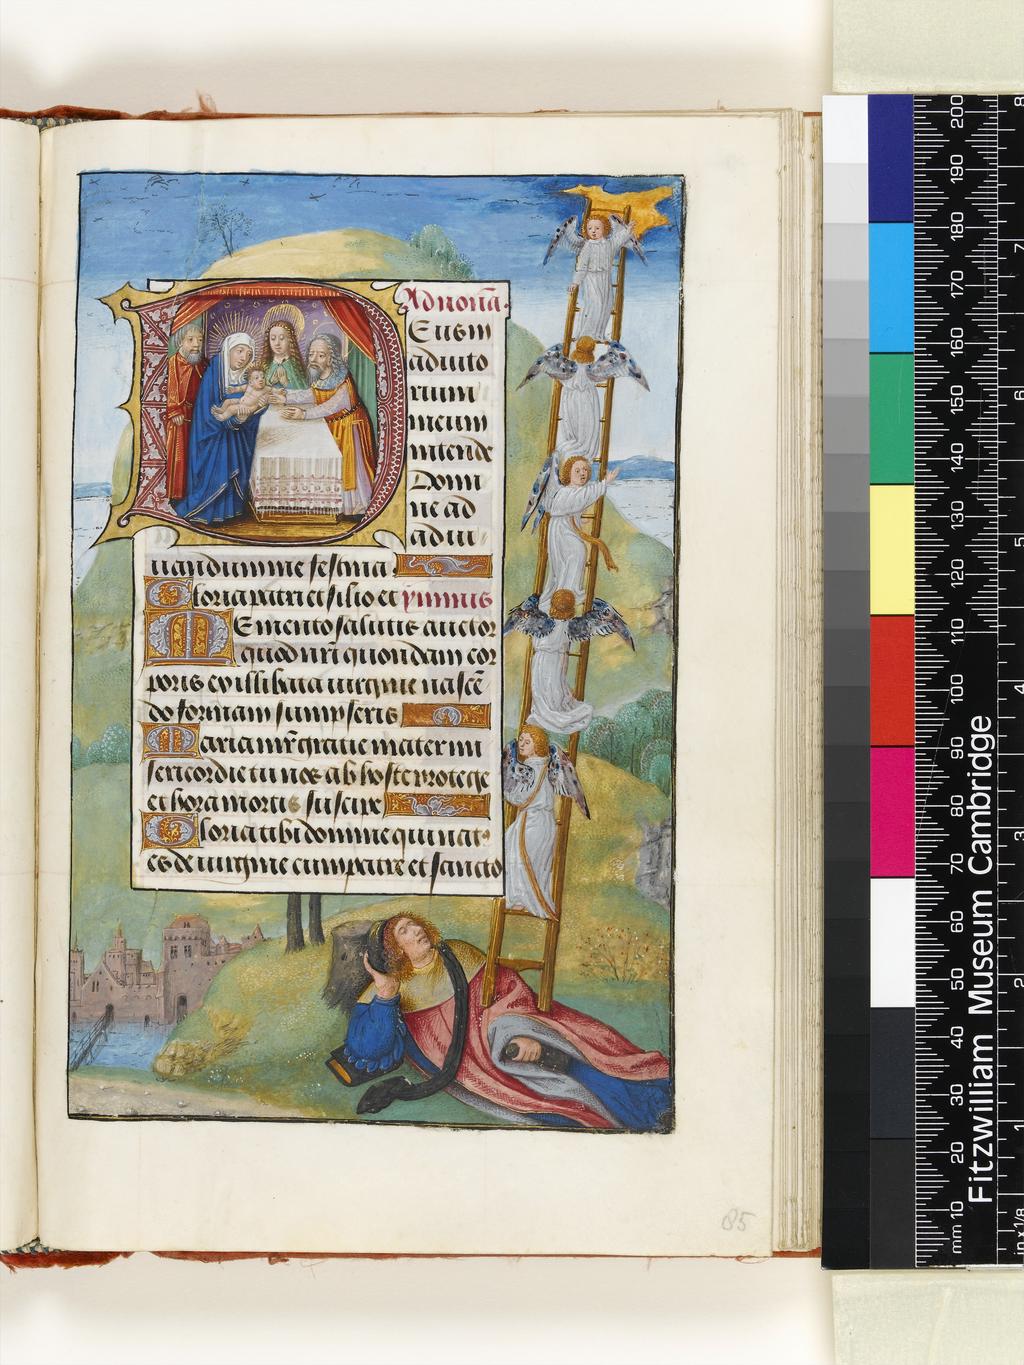 Ad nonā.
Eus in
adiuto
rium
meum
intende
Domi
ne ad
adiu
uandum me festina
Gloria patri et filio et ymnus
Memento salutis auctor
quod nr̄i quondam cor
poris ex illibata uirgine nascē
do formam sumpseris
Maria mr̄ gratie mater mi
sericordie tu nos ab hoste protege
et hora mortis suscipe
Gloria tibi domine qui nat
es de uirgine cum patre et sancto
85
Fitzwilliam Museum Cambridge
mm 10 20 30 40 50 60 70 80 90 100 110 120 130 140 150 160 170 180 190 200
in x 1/8 1 2 3 4 5 6 7 8